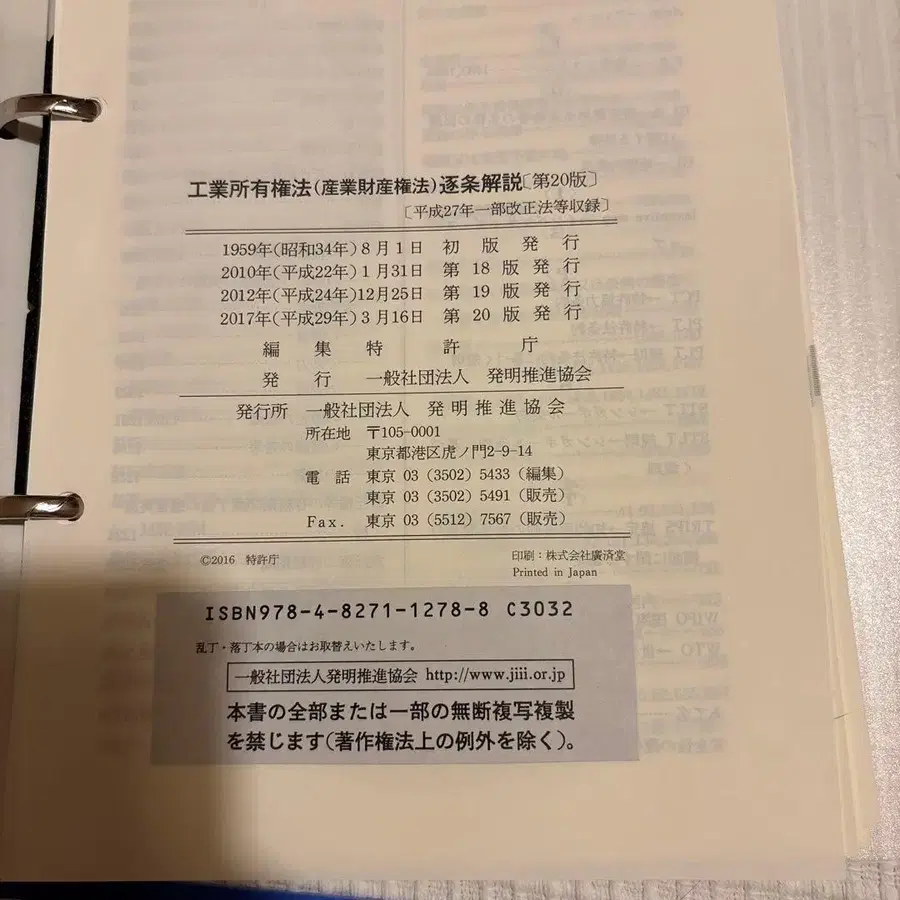 工業所有権法(産業財産権法)逐条解説〔第20版〕
〔平成27年一部改正法等収録〕
1959年(昭和34年)8月1日 初版発行
2010年(平成22年)1月31日 第18版発行
2012年(平成24年)12月25日 第19版発行
2017年(平成29年)3月16日 第20版発行
編集 特許庁
発行 一般社団法人 発明推進協会
発行所 一般社団法人 発明推進協会
所在地 〒105-0001
東京都港区虎ノ門2-9-14
電話 東京 03 (3502) 5433 (編集)
東京 03 (3502) 5491 (販売)
Fax. 東京 03 (5512) 7567 (販売)
©2016 特許庁 印刷:株式会社廣済堂
Printed in Japan
ISBN978-4-8271-1278-8 C3032
乱丁・落丁本の場合はお取替えいたします。
一般社団法人発明推進協会 http://www.jiii.or.jp
本書の全部または一部の無断複写複製
を禁じます(著作権法上の例外を除く)。